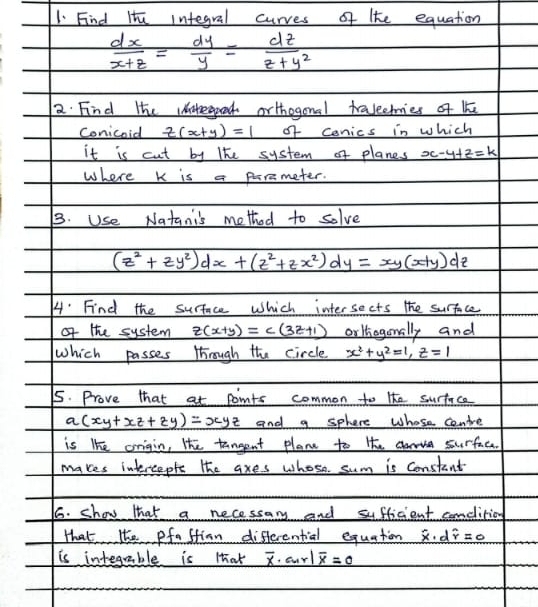 1. Find the integral curves of the equation
dx/x+z = dy/y = dz/z+y²
2. Find the orthogonal trajectories of the
Conicoid z(x+y) = 1 of conics in which
it is cut by the system of planes x-y+z=k
where k is a parameter.
3. Use Natani's method to solve
(z² + zy²)dx + (z²+zx²)dy = xy(x+y)dz
4. Find the surface which intersects the surface
of the system z(x+y) = c(3z+1) orthogonally and
which passes through the circle x²+y²=1, z=1
5. Prove that at points common to the surface
a(xy+xz+zy) = xyz and a sphere whose centre
is the origin, the tangent plane to the surface.
makes intercepts the axes whose sum is constant
6. Show that a necessary and sufficient condition
that the pfaffian differential equation x̄.dr̄=0
is integrable is that x̄.curl x̄ = 0